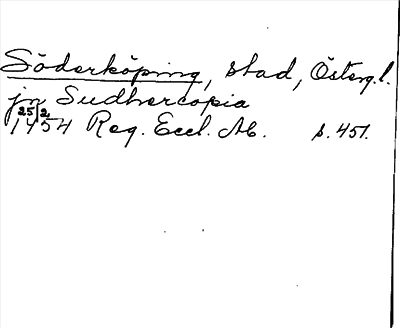 Söderköping, stad, Östergl.
jn Sudhercopia
25/2
1454 Reg. Eccl. Ab. s. 451.